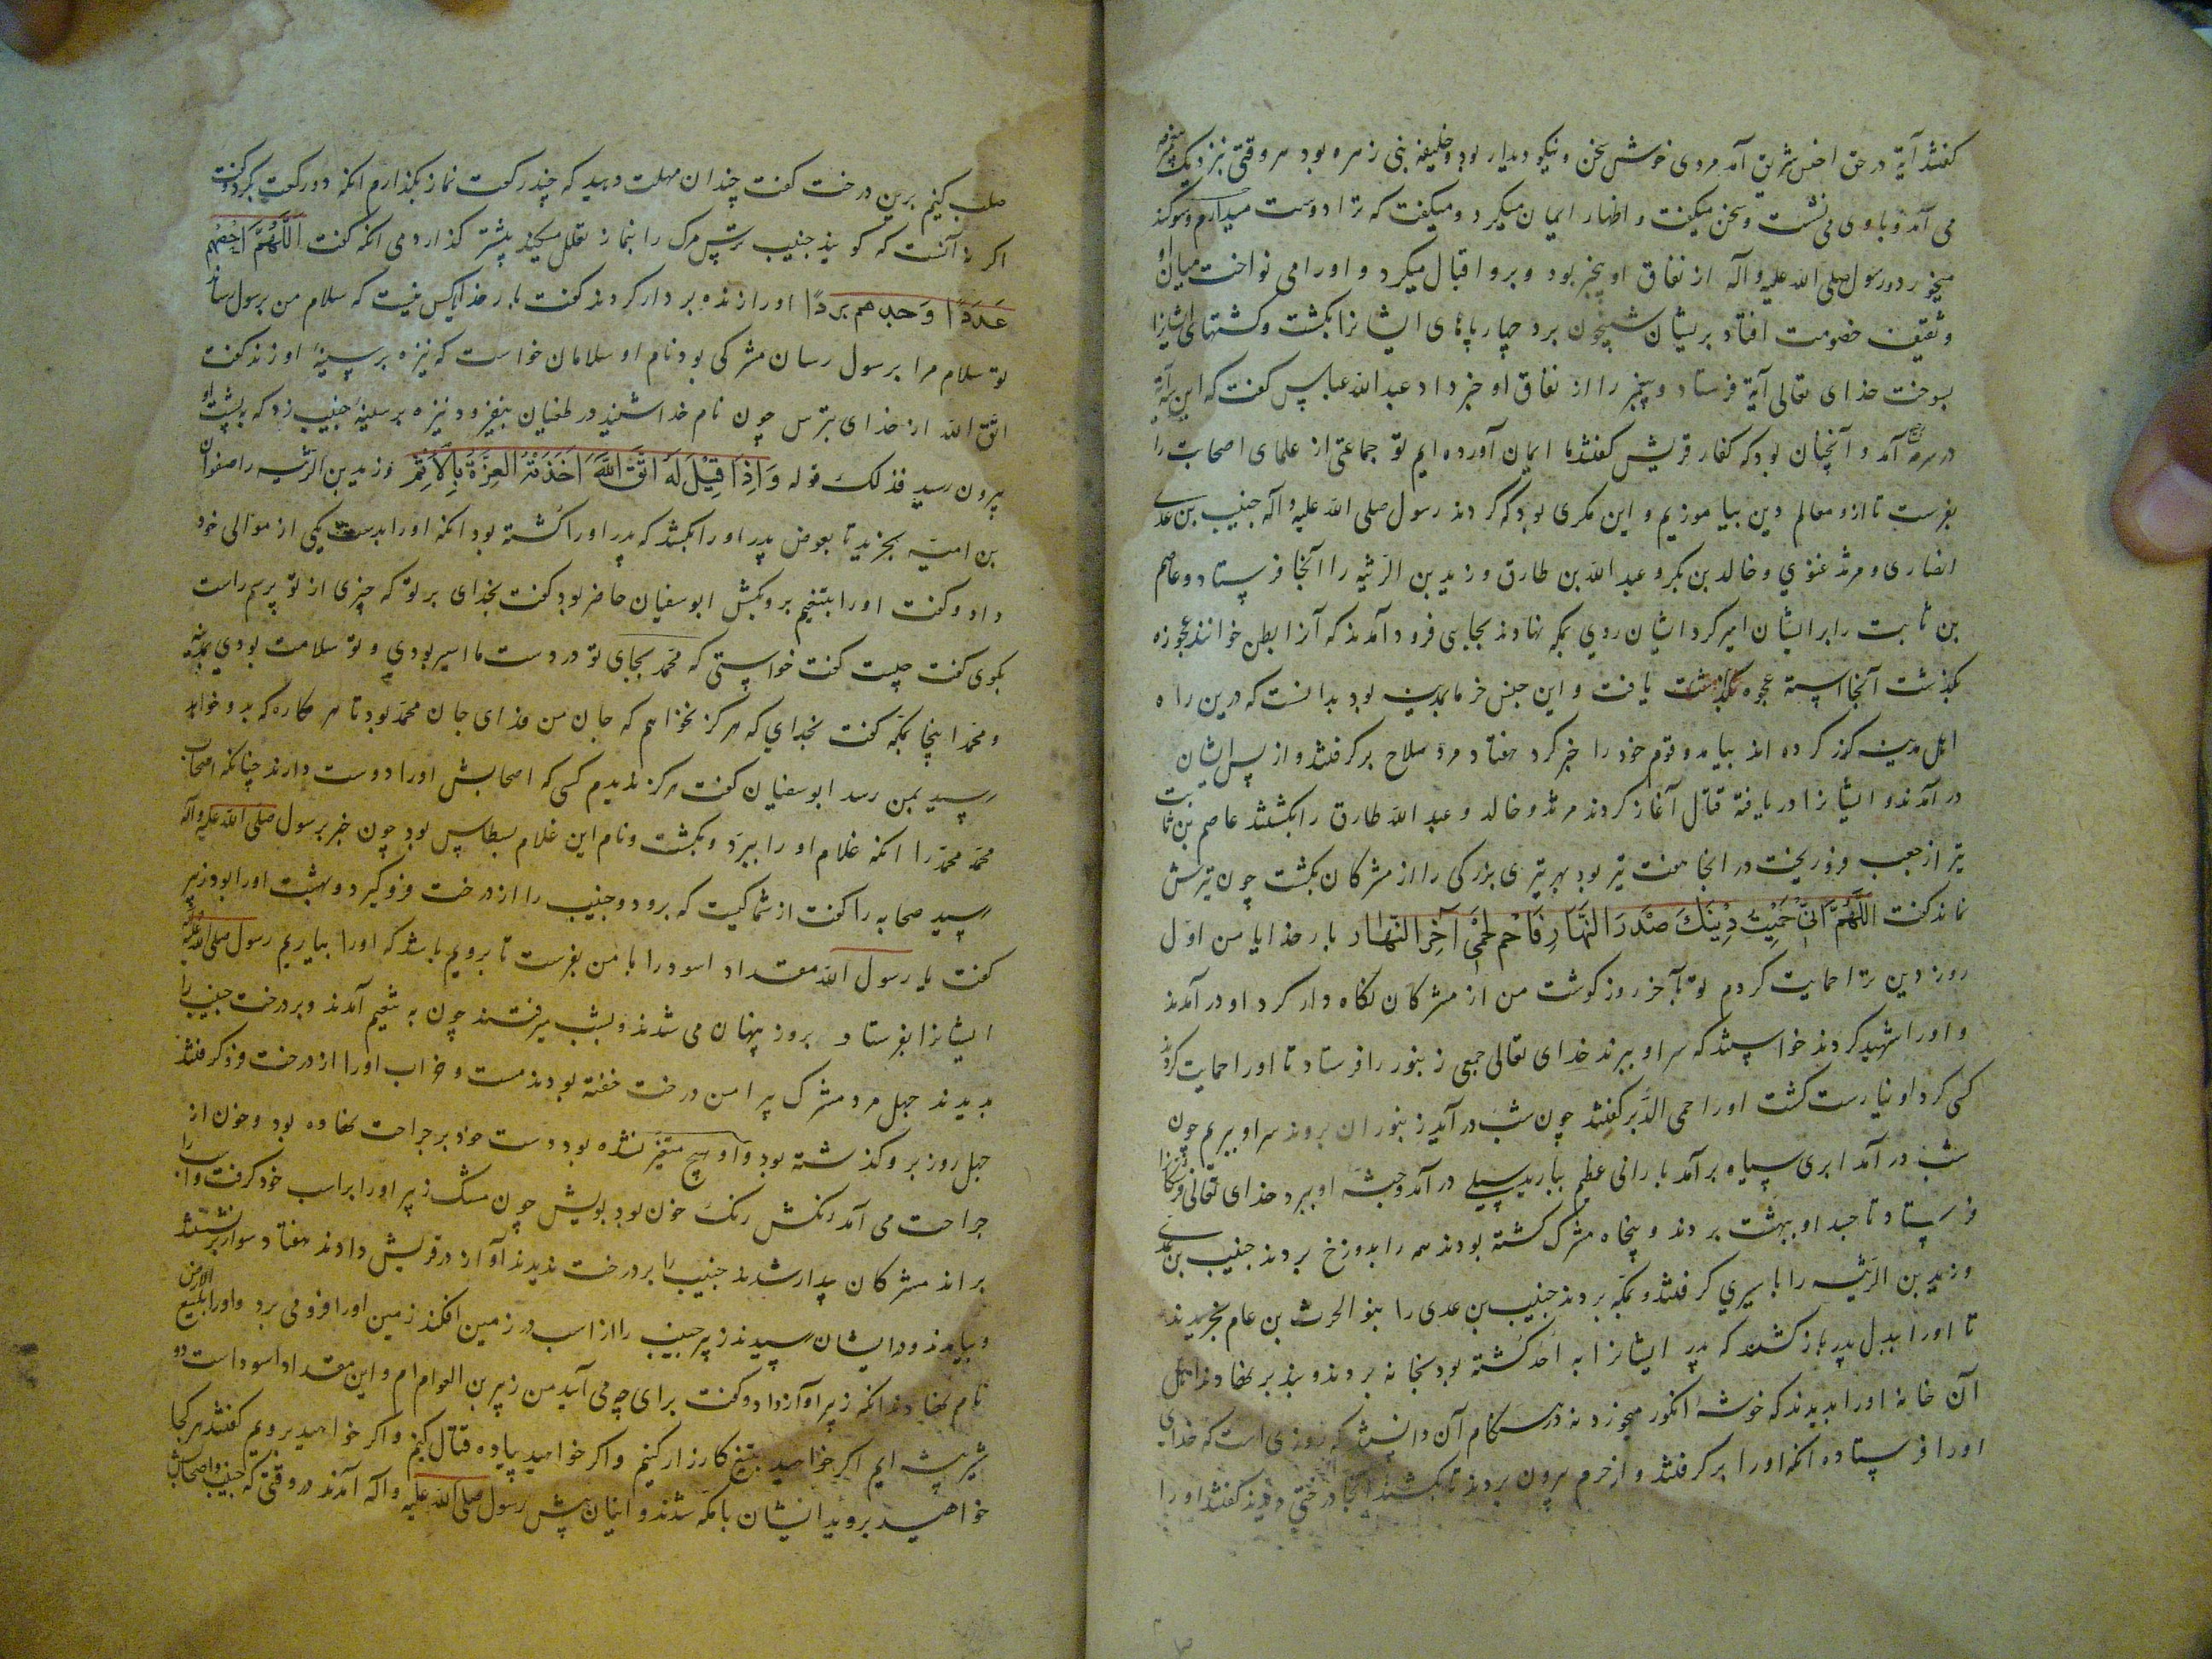 گفتند آیة در حق اخنس شریق آمد مردی خوش سخن و نیکو دیدار بود و خلیفه بنی زهره بود هر وقتی بنزدیک پیغمبر
می آمد و با وی می نشست و سخن میگفت و اظهار ایمان میکرد و میگفت که ترا دوست میدارم و سوگند
میخورد و رسول صلی الله علیه وآله از نفاق او بیخبر بود و برو اقبال میکرد و او را می نواخت میان او
و ثقیف خصومت افتاد بریشان شبیخون برد چهارپاهای ایشانرا بکشت و کشتهای ایشانرا
بسوخت خدای تعالی آیة فرستاد و پیغمبر را از نفاق او خبر داد عبدالله عباس گفت که این آیة
در سریة رجیع آمد و آنچنان بود که کفار قریش گفتند ما ایمان آورده ایم تو جماعتی از علمای اصحابت را
بفرست تا ازو معالم دین بیاموزیم و این مکری بود که کردند رسول صلی الله علیه وآله خبیب بن عدی
انصاری و مرثد غنوی و خالد بن بکر و عبدالله بن طارق و زید بن الرثیه را آنجا فرستاد و عاصم
بن ثابت را بر ایشان امیر کرد ایشان روی بمکه نهادند بجایی فرود آمدند که آنرا بطن خوانند عجوزه
بگذشت آنجا استه عجوه یافت و این جنس خرما بمدینه بود بدانست که درین راه
اهل مدینه گذر کرده اند بیامد و قوم خود را خبر کرد هفتاد مرد سلاح برگرفتند و از پس ایشان
در آمدند و ایشانرا دریافته قتال آغاز کردند مرثد و خالد و عبدالله طارق را بکشتند عاصم بن ثابت
تیر از جعبه فرو ریخت در آنجا هفت تیر بود بهر تیری بزرگی را از مشرکان بکشت چون تیرش
نماند گفت اللَّهُمَّ اِنِّی حَمَیْتُ دِیْنَکَ صَدْرَ النَّهَارِ فَاحْمِ لَحْمِی آخِرَ النَّهَارِ بار خدایا من اول
روز دین ترا حمایت کردم تو بآخر روز گوشت من از مشرکان نگاه دار گرد او در آمدند
و او را شهید کردند خواستند که سر او ببرند خدای تعالی جمعی زنبور را فرستاد تا او را حمایت کردند
کسی گرد او نیارست گشت او را حمی الدَّبر گفتند چون شب در آید زنبوران بروند سر او ببریم چون
شب در آمد ابری سیاه بر آمد بارانی عظیم ببارید سیلی در آمد و جثه او ببرد خدای تعالی فرشتگانرا
فرستاد تا جسد او ببهشت بردند و پنجاه مشرک کشته بودند همه را بدوزخ بردند خبیب بن عدی
و زید بن الرثیه را باسیری گرفتند و بمکه بردند خبیب بن عدی را بنو الحرث بن عامر بخریدند
تا او را ببدل پدر باز کشند که پدر ایشانرا به اُحد کُشته بود بخانه بردند و بند بر نهادند اهل
آن خانه او را بدیدند که خوشه انگور میخورد نه هنگام آن دانستند که روزی است که خدای
او را فرستاده انگه او را بر گرفتند و از حرم بیرون بردند تا بکشند آنجا درختی دیدند گفتند او را
صلب کنیم برین درخت گفت چندان مهلت دهید که چند رکعت نماز بگذارم انگه دو رکعت بکرد و گفت
اگر نه آنست که گویند خبیب بترس مرگ را بنماز تعلل میکند بیشتر گذاردمی انگه گفت اَللَّهُمَّ اَحْصِهِم
عَدَدًا وَ خذهم بددًا او را زنده بر دار کردند گفت بار خدایا کس نیست که سلام من برسول رساند
تو سلام مرا برسول رسان مشرکی بود نام او سلامان خواست که نیزه بر سینهٔ او زند گفت
اتّق الله از خدای بترس چون نام خدا شنید در طغیان بیفزود نیزه بر سینهٔ خبیب زد که به پشت او
بیرون رسید فذلک قوله وَاِذَا قِیْلَ لَهُ اتَّقِ اللّٰهَ اَخَذَتْهُ الْعِزَّةُ بِالْاِثْمِ و زید بن الرثیه را صفوان
بن امیه بخرید تا بعوض پدر او را بکشد که پدر او را کُشته بود انگه او را بدست یکی از موالی خود
داد و گفت او را بتنعیم بر و بکش ابوسفیان حاضر بود گفت بخدای بر تو که چیزی از تو پرسم راست
بگوی گفت چیست گفت خواستی که محمد بجای تو در دست ما اسیر بودی و تو سلامت بودی بمدینه
و محمد اینجا بمکه گفت بخدای که هرگز نخواهم که جان من فدای جان محمد بود تا هر مکاره که بدو خواهد
رسید بمن رسد ابوسفیان گفت هرگز ندیدم کسی که اصحابش او را دوست دارند چنانکه اصحاب
محمد محمد را انگه غلام او را ببرد و بکشت و نام این غلام بسطاس بود چون خبر برسول صلی الله علیه وآله
رسید صحابه را گفت از شما کیست که برود و خبیب را از درخت فرو گیرد و بهشت او را بود زبیر
گفت یا رسول الله مقداد اسود را با من بفرست تا برویم باشد که او را بیاریم رسول صلی الله علیه وآله
ایشانرا بفرستاد بروز پنهان می شدند و بشب میرفتند چون به تنعیم آمدند و بر درخت خبیب را
بدیدند چهل مرد مشرک پیرامن درخت خفته بودند مست و خراب او را از درخت فرو گرفتند
چهل روز برو گذشته بود و او هیچ متغیر نشده بود دست خود بر جراحت نهاده بود و خون از
جراحت می آمد رنگش رنگ خون بود بویش چون مسک زبیر او را بر اسب خود گرفت و اسب را
براند مشرکان بیدار شدند خبیب را بر درخت ندیدند آواز در قریش دادند هفتاد سوار بر نشستند
و بیامدند و در ایشان رسیدند زبیر خبیب را از اسب در زمین افکند زمین او را فرو می برد و او را بلیع الارض
نام نهادند انگه زبیر آواز داد و گفت برای چه می آیید من زبیر بن العوام ام و این مقداد اسود است دو
شیر بیشه ایم اگر خواهید بتیغ کارزار کنیم و اگر خواهید پیاده قتال کنیم و اگر خواهید برویم گفتند هر کجا
خواهید بروید ایشان با مکه شدند و اینان پیش رسول صلی الله علیه وآله آمدند در وقتی که خبیب و اصحابش